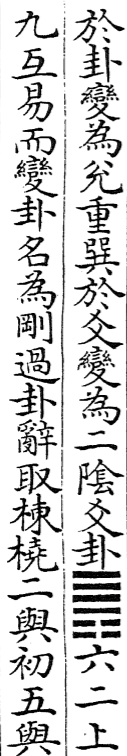 於卦變為兊重巽於爻變為二陰爻卦䷠六二上
九互易而變卦名為剛過卦辭取棟橈二與初五與